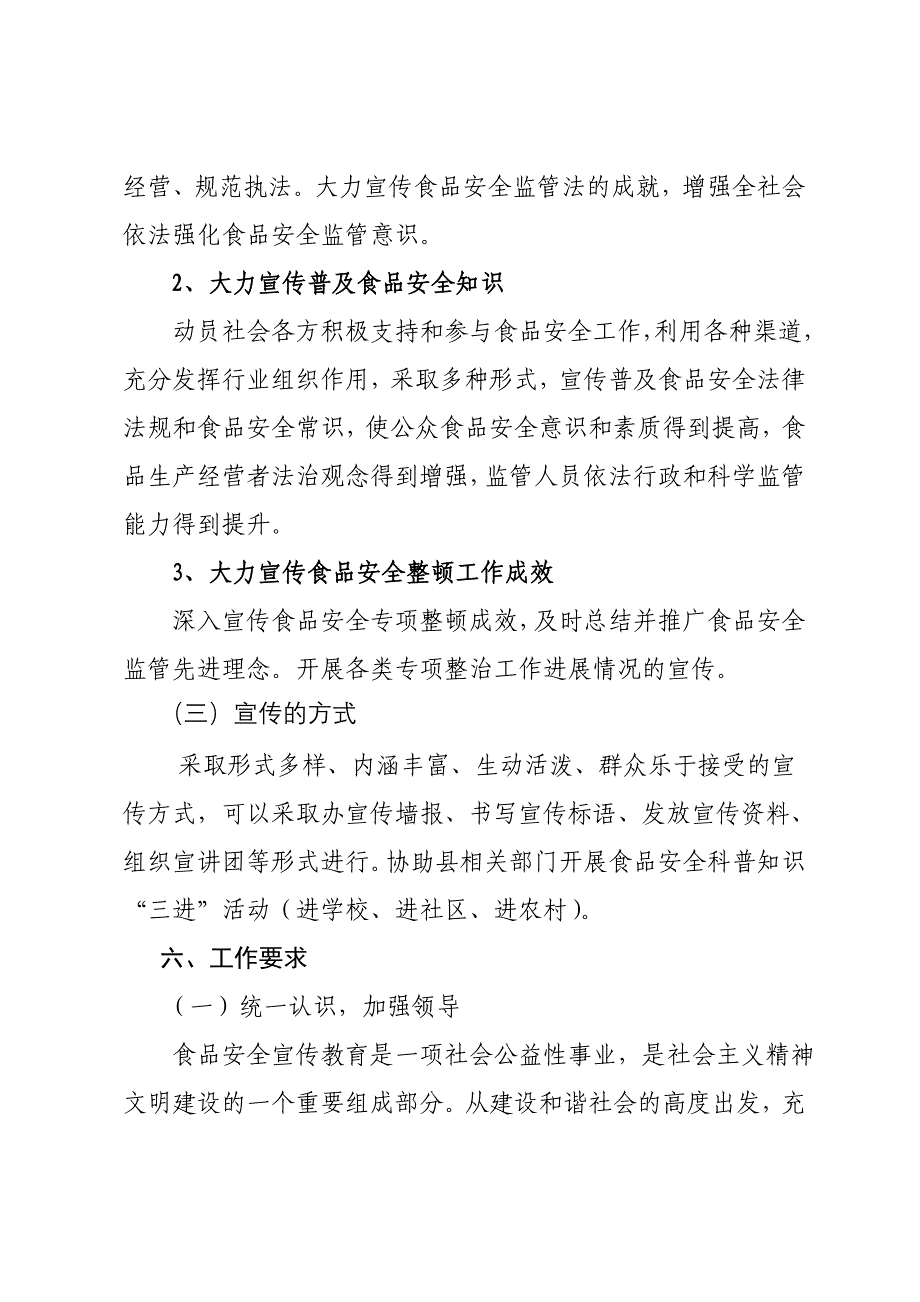 经营、规范执法。大力宣传食品安全监管法的成就，增强全社会
依法强化食品安全监管意识。
2、大力宣传普及食品安全知识
动员社会各方积极支持和参与食品安全工作，利用各种渠道，
充分发挥行业组织作用，采取多种形式，宣传普及食品安全法律
法规和食品安全常识，使公众食品安全意识和素质得到提高，食
品生产经营者法治观念得到增强，监管人员依法行政和科学监管
能力得到提升。
3、大力宣传食品安全整顿工作成效
深入宣传食品安全专项整顿成效，及时总结并推广食品安全
监管先进理念。开展各类专项整治工作进展情况的宣传。
（三）宣传的方式
采取形式多样、内涵丰富、生动活泼、群众乐于接受的宣
传方式，可以采取办宣传墙报、书写宣传标语、发放宣传资料、
组织宣讲团等形式进行。协助县相关部门开展食品安全科普知识
“三进”活动（进学校、进社区、进农村）。
六、工作要求
（一）统一认识，加强领导
食品安全宣传教育是一项社会公益性事业，是社会主义精神
文明建设的一个重要组成部分。从建设和谐社会的高度出发，充